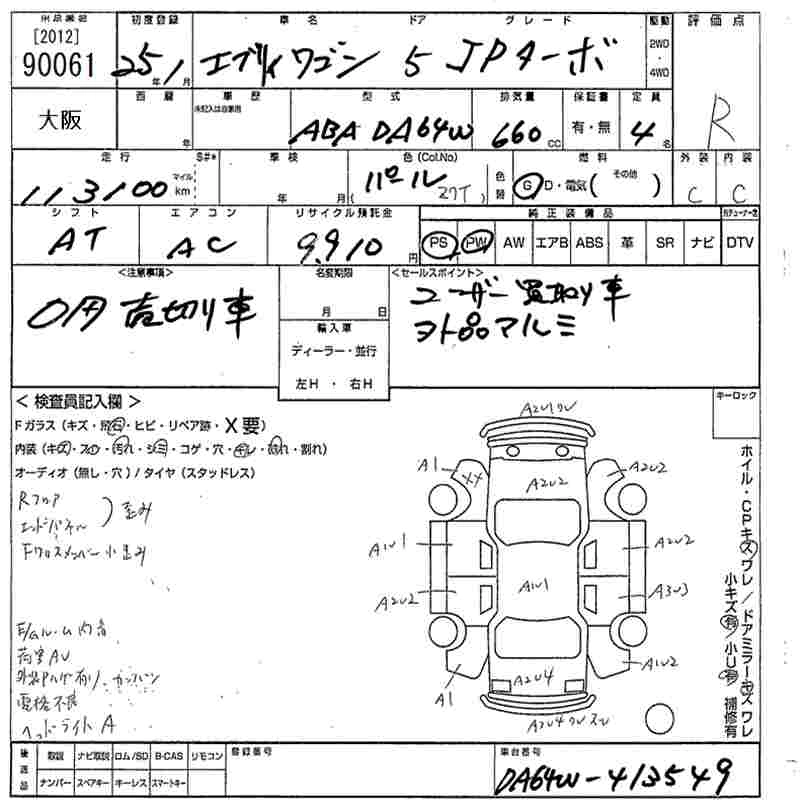 出品番号 初度登録 車名 ドア グレード 駆動 評価点
[2012] 90061 25年1月 エブリィワゴン 5 JPターボ 2WD・4WD R
大阪 西暦 年 車歴 未記入は自家用 型式 ABA DA64W 排気量 660 cc 保証書 有・無 定員 4名
走行 113100 マイル km S#* 車検 年 月 色(Col.No) パール (27T) 色替 燃料 G D・電気( その他 ) 外装 C 内装 C
シフト AT エアコン AC リサイクル預託金 9,910円 純正装備品 PS PW AW エアB ABS 革 SR ナビ DTV
<注意事項> 名変期限 <セールスポイント>
売切り車 月 日 ユーザー買取り車
輸入車 マルミ
ディーラー・並行
左H ・ 右H
< 検査員記入欄 > キーロック
Fガラス(キズ・飛石・ヒビ・リペア跡・X要)
内装(キズ・スレ・汚れ・シミ・コゲ・穴・キレ・割れ)
オーディオ(無し・穴)/タイヤ(スタッドレス)
Rフロア
エンドパネル 歪み
Fクロスメンバー小歪み
荷室AU
電格不良
ヘッドライトA
A1 A2U2 A2U2
A1U1 A2U2
A2U2 A1U1 A3U3
A1 A2U4 A1U2
ホイル・CPキズワレ/ドアミラーキズワレ
小キズ有/小U有 補修有
後送品 取説 ナビ取説 ロム/SD B-CAS リモコン 登録番号 車台番号
ナンバー スペアキー キーレス スマートキー DA64W-413549